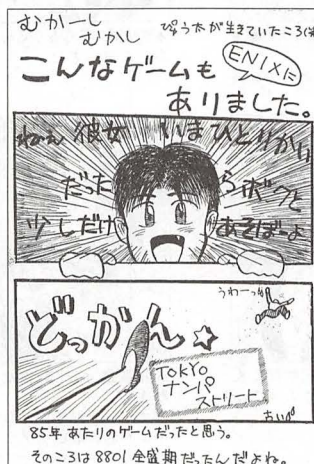 むかーし
むかし
ぴゅう太が生きていたころ(笑
こんなゲームも
ENIXに
ありました。
ねぇねぇ 彼女 いまひとりかい
だったらボクと
少しだけ あそぼーよ
うわーっ
どっかーん☆
TOKYO
ナンパ
ストリート
おい
85年あたりのゲームだったと思う。
そのころは8801全盛期だったんだよね。